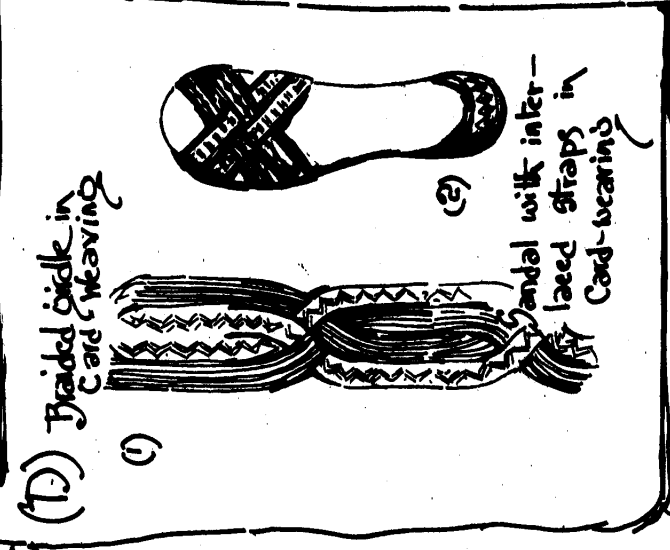 (D) Braided Girdle in
Card-Weaving
(1)
(2)
Sandal with inter-
laced straps in
Card-weaving